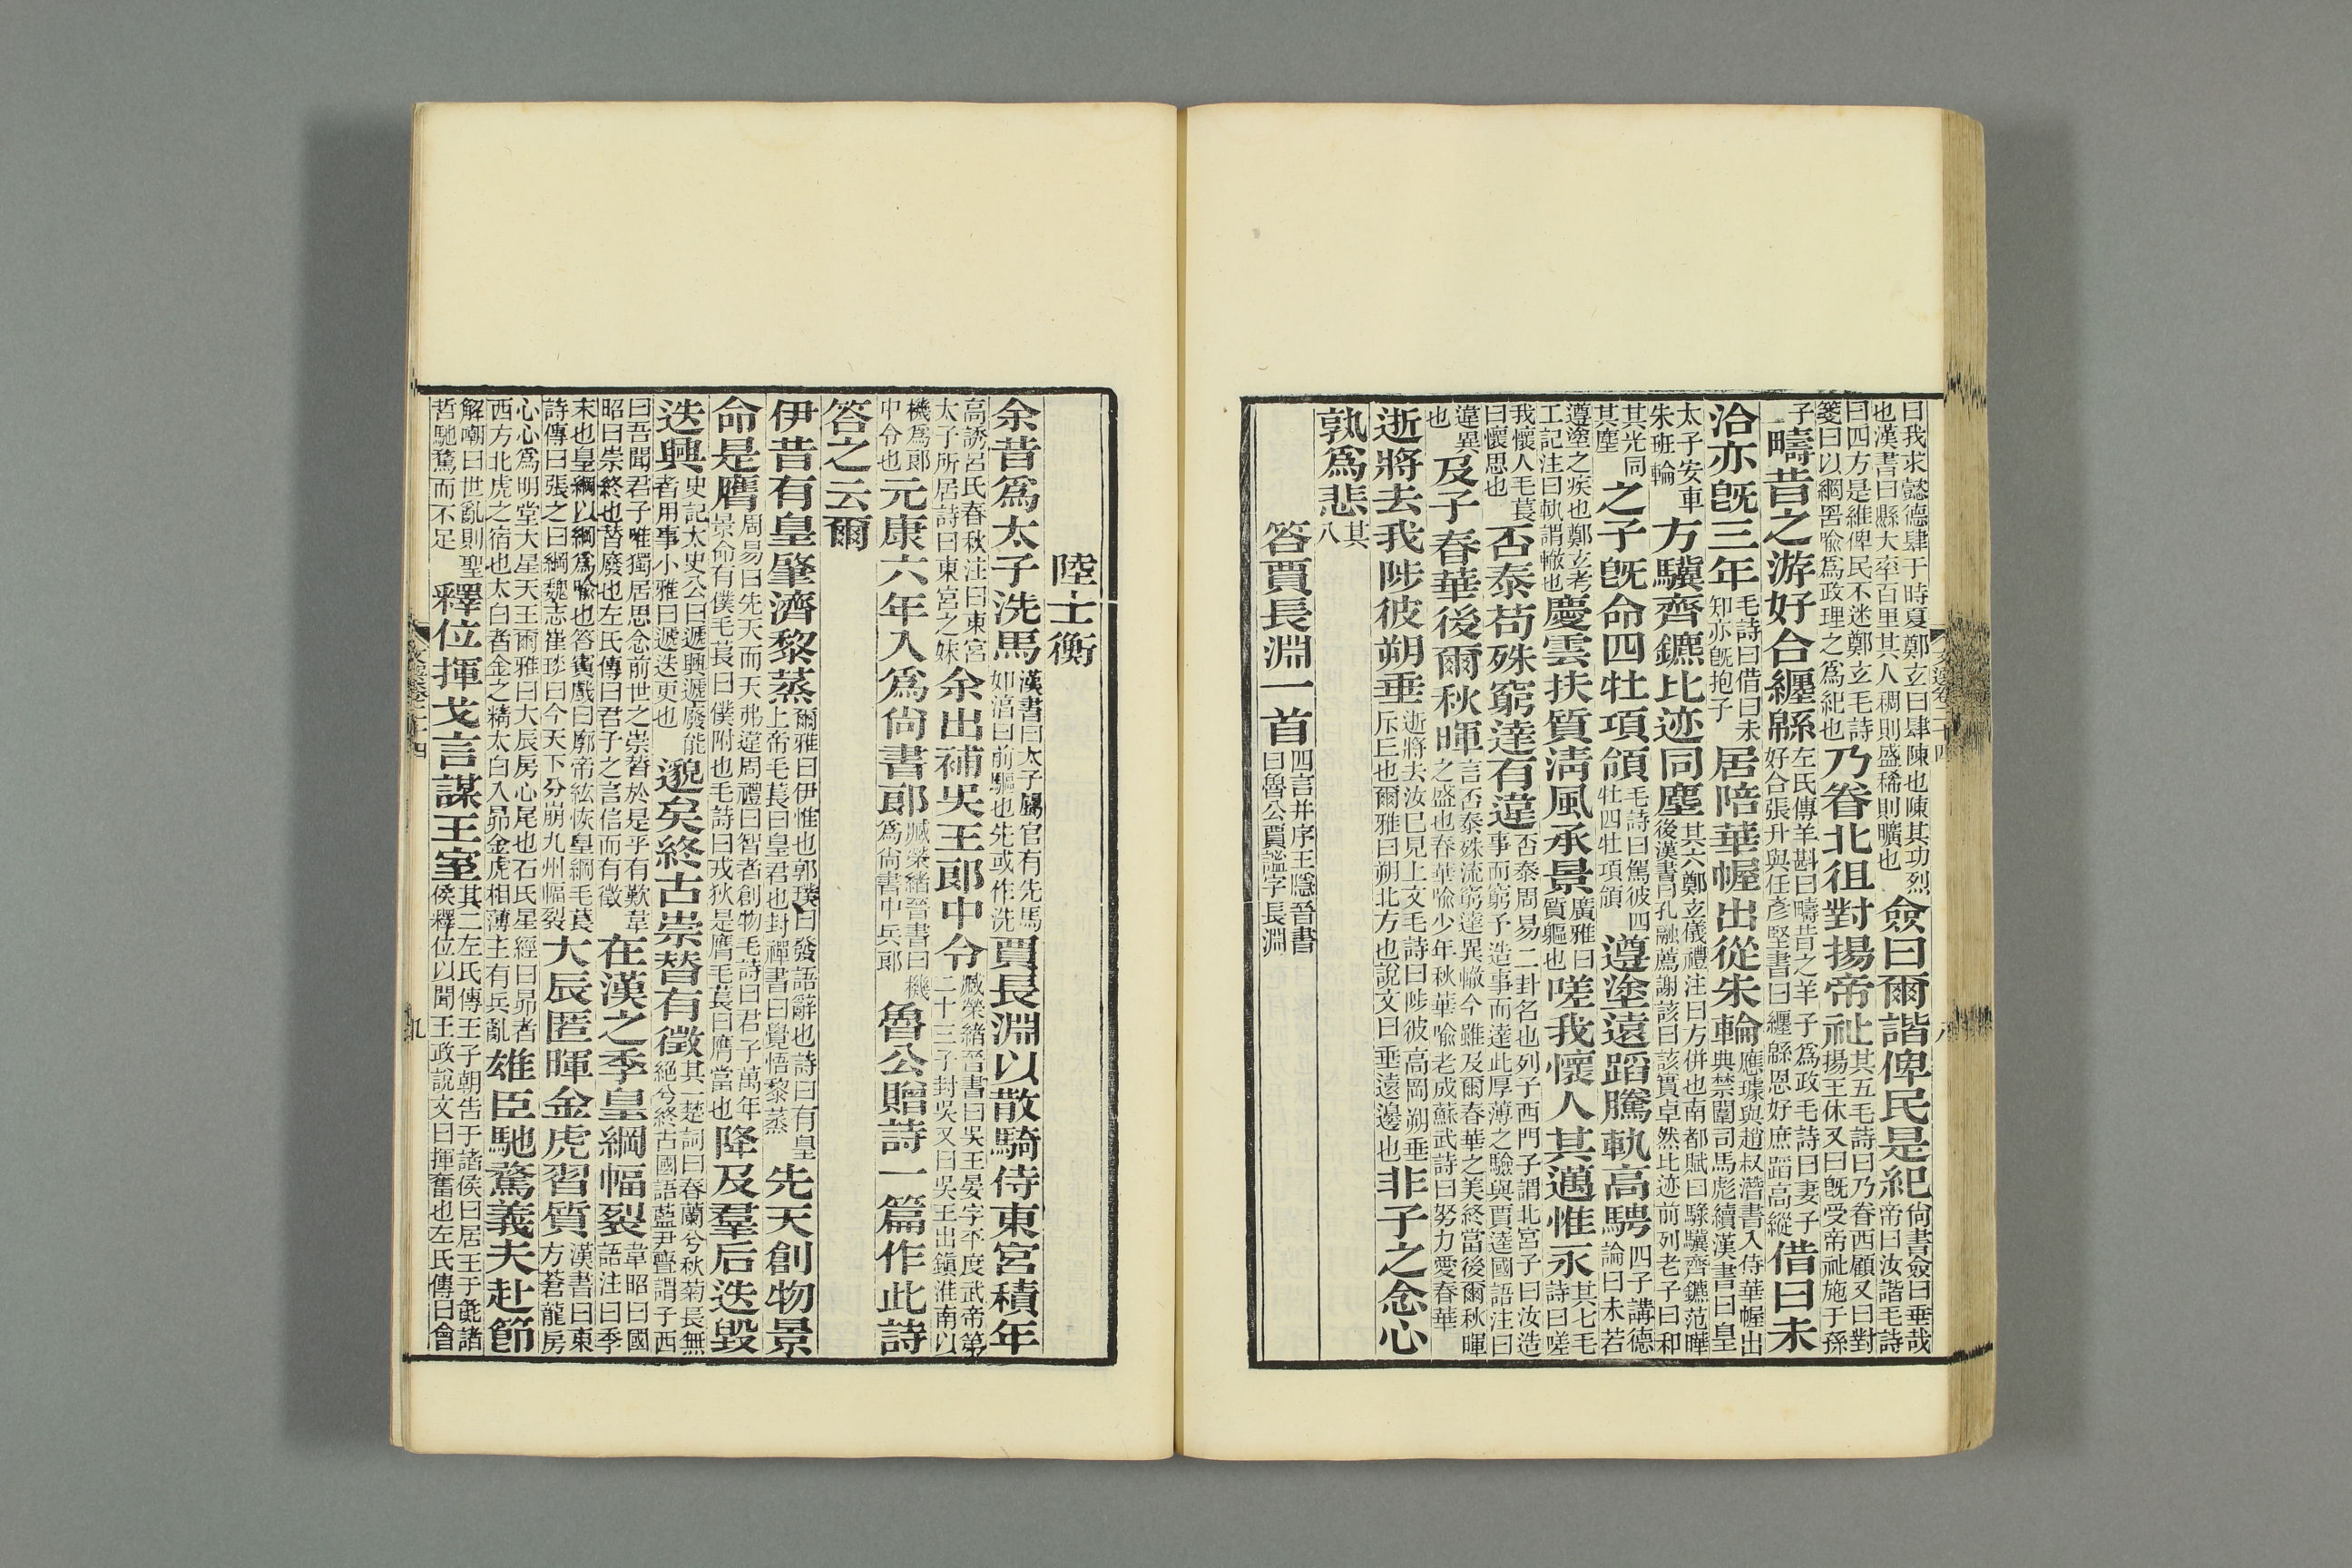 曰我求懿德肆于時夏鄭玄曰肆陳也陳其功烈
也漢書曰縣大率百里其人稠則盛稀則曠也
僉曰爾諧俾民是紀
尚書僉曰垂哉
帝曰汝諧毛詩
曰四方是維俾民不迷鄭玄毛詩
箋曰以綱罟喻爲政理之爲紀也
乃眷北徂對揚帝祉
其五毛詩曰乃眷西顧又曰對
揚王休又曰旣受帝祉施于孫
子
疇昔之游好合纏緜
左氏傳羊斟曰疇昔之羊子爲政毛詩曰妻子
好合張升與任彥堅書曰纏緜恩好庶蹈高縱
借曰未
洽亦旣三年
毛詩曰借曰未
知亦旣抱子
居陪華幄出從朱輪
應璩與趙叔潛書入侍華幄出
典禁闈司馬彪續漢書曰皇
太子安車
朱班輪
方驥齊鑣比迹同塵
其六鄭玄儀禮注曰方併也南都賦曰騄驥齊鑣范曄
後漢書曰孔融薦謝該曰該實卓然比迹前列老子曰和
其光同
其塵
之子旣命四牡項領
毛詩曰駕彼四
牡四牡項領
遵塗遠蹈騰軌高騁
四子講德
論曰未若
遵塗之疾也鄭玄考
工記注曰軌謂轍也
慶雲扶質淸風承景
廣雅曰
質軀也
嗟我懷人其邁惟永
其七毛
詩曰嗟
我懷人毛萇
曰懷思也
否泰苟殊窮達有違
否泰周易二封名也列子西門子謂北宮子曰汝造
事而窮予造事而達此厚薄之驗與賈逵國語注曰
違異
也
及子春華後爾秋暉
言否泰殊流窮達異轍今雖及爾春華之美終當後爾秋暉
之盛也春華喻少年秋華喻老成蘇武詩曰努力愛春華
逝將去我陟彼朔垂
逝將去汝已見上文毛詩曰陟彼高岡朔垂
斥丘也爾雅曰朔北方也說文曰垂遠邊也
非子之念心
孰爲悲
其
八
答賈長淵一首
四言并序王隱晉書
曰魯公賈謐字長淵
陸士衡
余昔爲太子洗馬
漢書曰太子屬官有先馬
如淳曰前驅也先或作洗
賈長淵以散騎侍東宮積年
高誘呂氏春秋注曰東宮
太子所居詩曰東宮之妹
余出補吳王郎中令
臧榮緒晉書曰吳王晏字平度武帝第
二十三子封吳又曰吳王出鎭淮南以
機爲郎
中令也
元康六年入爲尙書郎
臧榮緒晉書曰機
爲尙書中兵郎
魯公贈詩一篇作此詩
答之云爾
伊昔有皇肇濟黎蒸
爾雅曰伊惟也郭璞曰發語辭也詩曰有皇
上帝毛萇曰皇君也封禪書曰覺悟黎蒸
先天創物景
命是膺
周易曰先天而天弗違周禮曰智者創物毛詩曰君子萬年
景命有僕毛萇曰僕附也毛詩曰戎狄是膺毛萇曰膺當也
降及羣后迭毀
迭興
史記太史公曰遞興遞廢能
者用事小雅曰遞迭更也
邈矣終古崇替有徵
其一楚詞曰春蘭兮秋菊長無
絕兮終古國語藍尹亹謂子西
曰吾聞君子唯獨居思念前世之崇替於是乎有歎韋
昭曰崇終也替廢也左氏傳曰君子之言信而有徵
在漢之季皇綱幅裂
韋昭曰國
語注曰季
末也皇綱以綱爲喻也答賓戲曰廓帝紘恢皇綱毛萇
詩傳曰張之曰綱魏志崔琰曰今天下分崩九州幅裂
大辰匿暉金虎習質
漢書曰東
方蒼龍房
心心爲明堂大星天王爾雅曰大辰房心尾也石氏星經曰昴者
西方北虎之宿也太白者金之精太白入昴金虎相薄主有兵亂
雄臣馳騖義夫赴節
解嘲曰世亂則聖
哲馳騖而不足
釋位揮戈言謀王室
其二左氏傳王子朝告于諸侯曰居王于彘諸
侯釋位以閒王政說文曰揮奮也左氏傳曰會